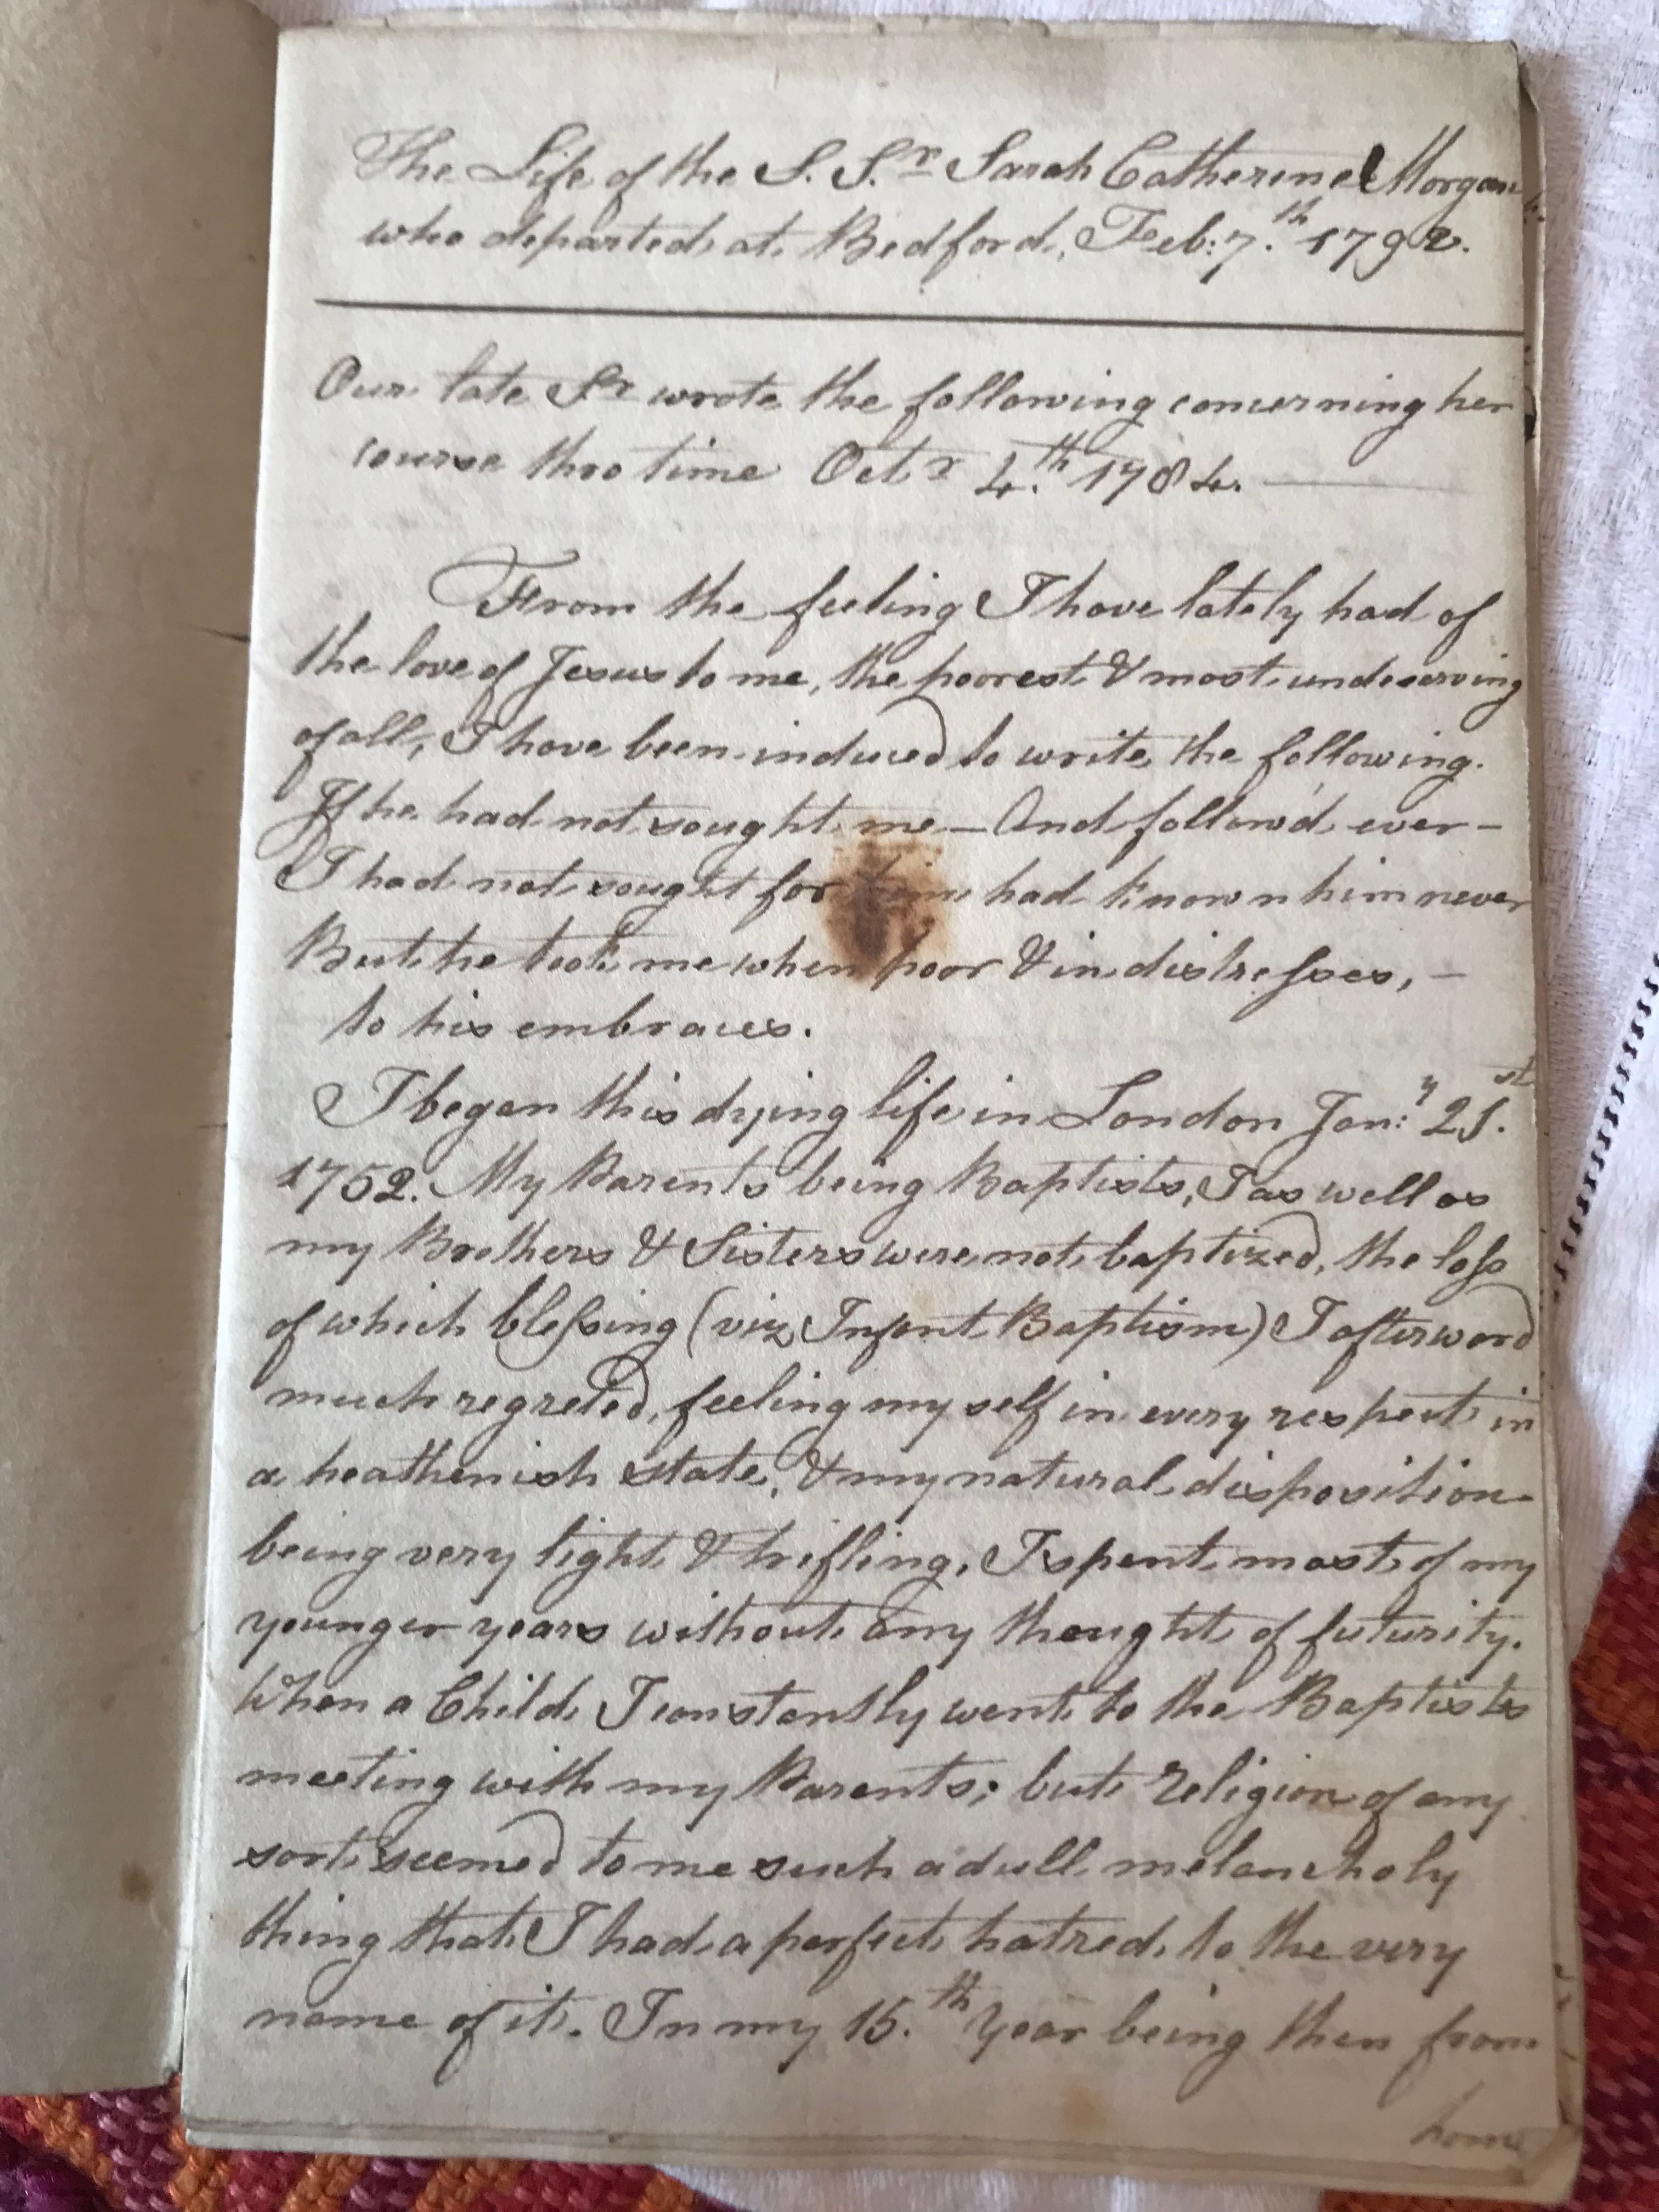 The Life of the S. Sr. Sarah Catherine Morgan
who departed at Bedford, Feb: 7.th 1792.
Our late Sr wrote the following concerning her
course thro time Octr 4.th 1784.
From the feeling I have lately had of
the love of Jesus to me, the poorest & most undeserving
of all, I have been induced to write the following.
If he had not sought me – And follow'd ever –
I had not sought for him had known him never
But he took me when poor & in distresses, –
to his embraces.
I began this dying life in London Jan:y 21.st
1752. My Parents being Baptists, I as well as
my Brothers & Sisters were not baptized, the loss
of which blessing (viz Infant Baptism) I afterward
much regreted, feeling my self in every respect in
a heathenish state, & my natural disposition
being very light & trifling, I spent most of my
younger years without any thought of futurity.
When a Child I constantly went to the Baptists
meeting with my Parents; but religion of any
sort seemed to me such a dull melancholy
thing that I had a perfect hatred to the very
name of it. In my 15.th Year being then from
home